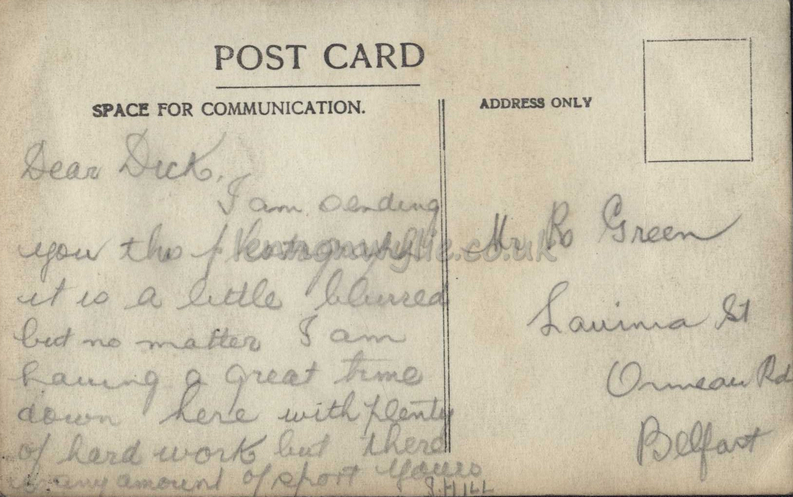 POST CARD
SPACE FOR COMMUNICATION.
Dear Dick,
I am sending
you this photograph
it is a little blurred
but no matter I am
having a great time
down here with plenty
of hard work but there
is any amount of sport yours
J. HILL
ADDRESS ONLY
Mr R Green
Lavinia St
Ormeau Rd
Belfast
.co.uk